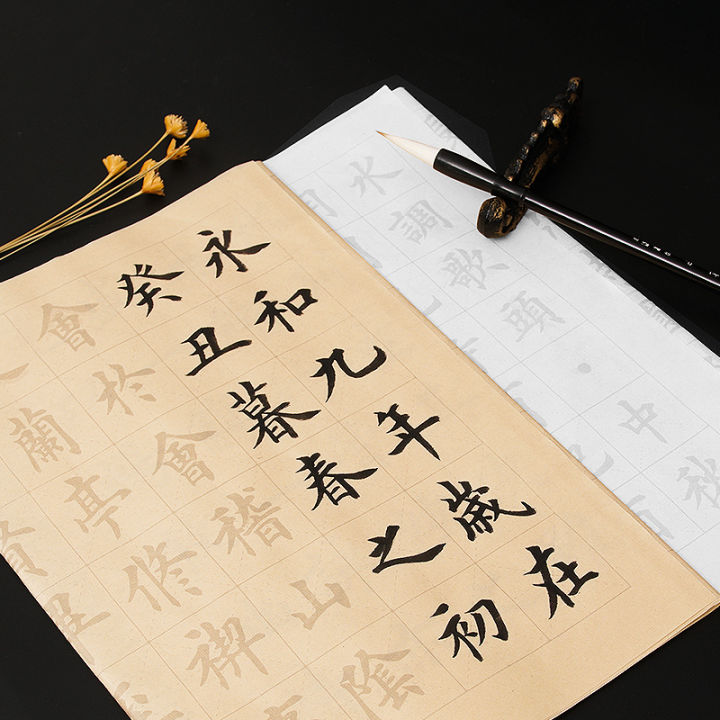 永和九年歲在
癸丑暮春之初
會於會稽山陰
蘭亭修禊
賢畢
水調歌頭·中秋